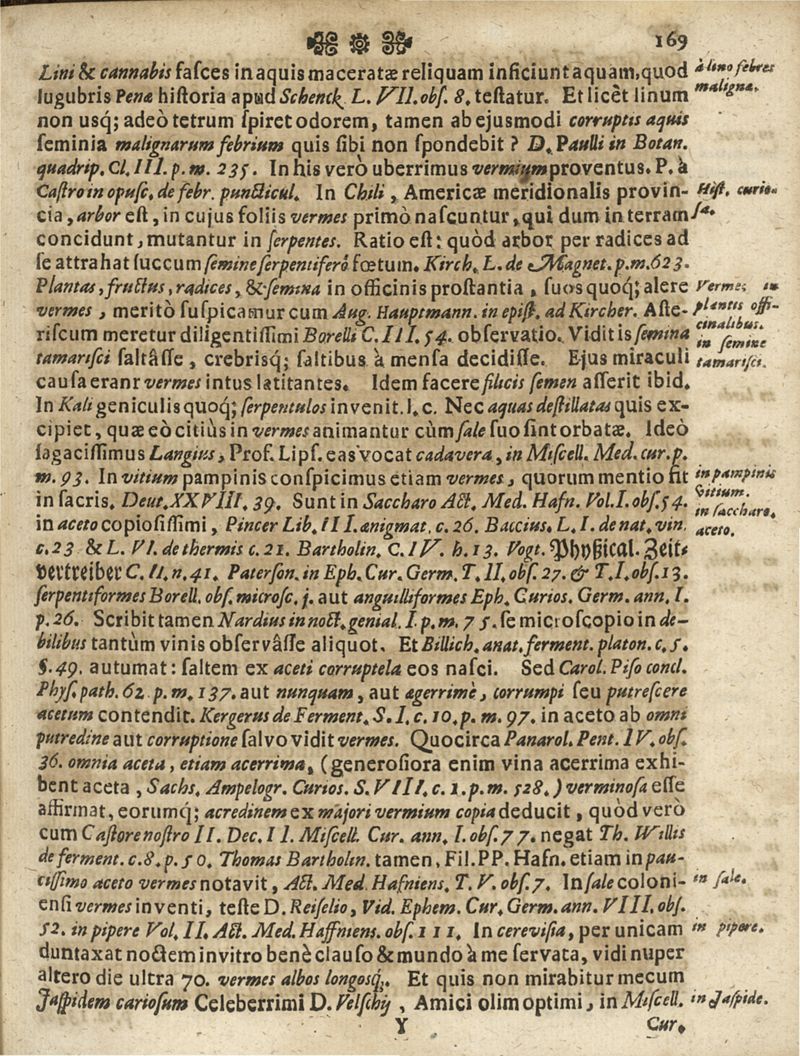 169
Lini & cannabis faſces in aquis maceratæ reliquam inficiunt aquam, quod
à lino febres
lugubris Penæ hiſtoria apud Schenck. L. VII. obſ. 8. teſtatur. Et licêt linum
malignæ.
non usq; adeò tetrum ſpiret odorem, tamen ab ejusmodi corruptis aquis
ſeminia malignarum febrium quis ſibi non ſpondebit? D. Paulli in Botan.
quadrip. Cl. III. p. m. 235. In his verò uberrimus vermium proventus. P. à
Caſtro in opuſc. de febr. punƈticul. In Chili, Americæ meridionalis provin-
Hiſt. curio-
cia, arbor eſt, in cujus foliis vermes primò naſcuntur, qui dum in terram
ſa.
concidunt, mutantur in ſerpentes. Ratio eſt: quòd arbor per radices ad
ſe attrahat ſuccum ſemine ſerpentiferô fœtum. Kirch. L. de Magnet. p. m. 623.
Plantas, fruƈtus, radices, & ſemina in officinis proſtantia, ſuos quoq; alere
Vermes in
vermes, meritò ſuſpicamur cum Aug. Hauptmann. in epiſt. ad Kircher. Aſte-
plantis offi-
riſcum meretur diligentiſſimi Borelli C. III. 54. obſervatio. Vidit is ſemina
cinalibus.
in ſemine
tamariſci ſaltâſſe, crebrisq; ſaltibus à menſa decidiſſe. Ejus miraculi
tamariſci.
cauſa eranr vermes intus latitantes. Idem facere ſilicis ſemen aſſerit ibid.
In Kali geniculis quoq; ſerpentulos invenit. l. c. Nec aquas deſtillatas quis ex-
cipiet, quæ eò citiùs in vermes animantur cùm ſale ſuo ſint orbatæ. Ideò
ſagaciſſimus Langius, Prof. Lipſ. eas vocat cadavera, in Miſcell. Med. cur. p.
m. 93. In vitium pampinis conſpicimus etiam vermes, quorum mentio fit
in pampinis
in ſacris. Deut. XXVIII. 39. Sunt in Saccharo Aƈt. Med. Hafn. Vol. I. obſ. 54.
vitium.
in ſaccharo.
in aceto copioſiſſimi, Pincer Lib. III. ænigmat. c. 26. Baccius. L. I. de nat. vin.
aceto.
c. 23 & L. VI. de thermis c. 21. Bartholin. C. IV. h. 13. Vogt. Phyſical. Zeit-
vertreiber C. II. n. 41. Paterſon. in Eph. Cur. Germ. T. II. obſ. 27. & T. I. obſ. 13.
ſerpentiformes Borell. obſ. microſc. j. aut anguilliformes Eph. Curios. Germ. ann. I.
p. 26. Scribit tamen Nardius in noƈt. genial. I. p. m. 75. ſe microſcopio in de-
bilibus tantùm vinis obſervâſſe aliquot. Et Billich. anat. ferment. platon. c. 5.
§. 49. autumat: ſaltem ex aceti corruptela eos naſci. Sed Carol. Piſo concl.
Phyſ. path. 62. p. m. 137. aut nunquam, aut ægerrimè, corrumpi ſeu putreſcere
acetum contendit. Kergerus de Ferment. S. I. c. 10. p. m. 97. in aceto ab omni
putredine aut corruptione ſalvo vidit vermes. Quocirca Panarol. Pent. IV. obſ.
36. omnia aceta, etiam acerrima, (generoſiora enim vina acerrima exhi-
bent aceta, Sachs. Ampelogr. Curios. S. VIII. c. 1. p. m. 528.) verminoſa eſſe
affirmat, eorumq; acredinem ex majori vermium copia deducit, quòd verò
cum Caſtore noſtro II. Dec. II. Miſcell. Cur. ann. I. obſ. 77. negat Th. Willis
de ferment. c. 8. p. 50. Thomas Bartholin. tamen, Fil. PP. Hafn. etiam in pau-
ciſſimo aceto vermes notavit, Aƈt. Med. Hafniens. T. V. obſ. 7. In ſale coloni-
in ſale.
enſi vermes inventi, teſte D. Reiſelio, Vid. Ephem. Cur. Germ. ann. VIII. obſ.
52. in pipere Vol. II. Aƈt. Med. Haffniens. obſ. 111. In cereviſia, per unicam
in pipere.
duntaxat noƈtem in vitro benè clauſo & mundo à me ſervata, vidi nuper
altero die ultra 70. vermes albos longosq;. Et quis non mirabitur mecum
Jaſpidem carioſum Celeberrimi D. Velſchij, Amici olim optimi, in Miſcell.
in Jaſpide.
Y
Cur.